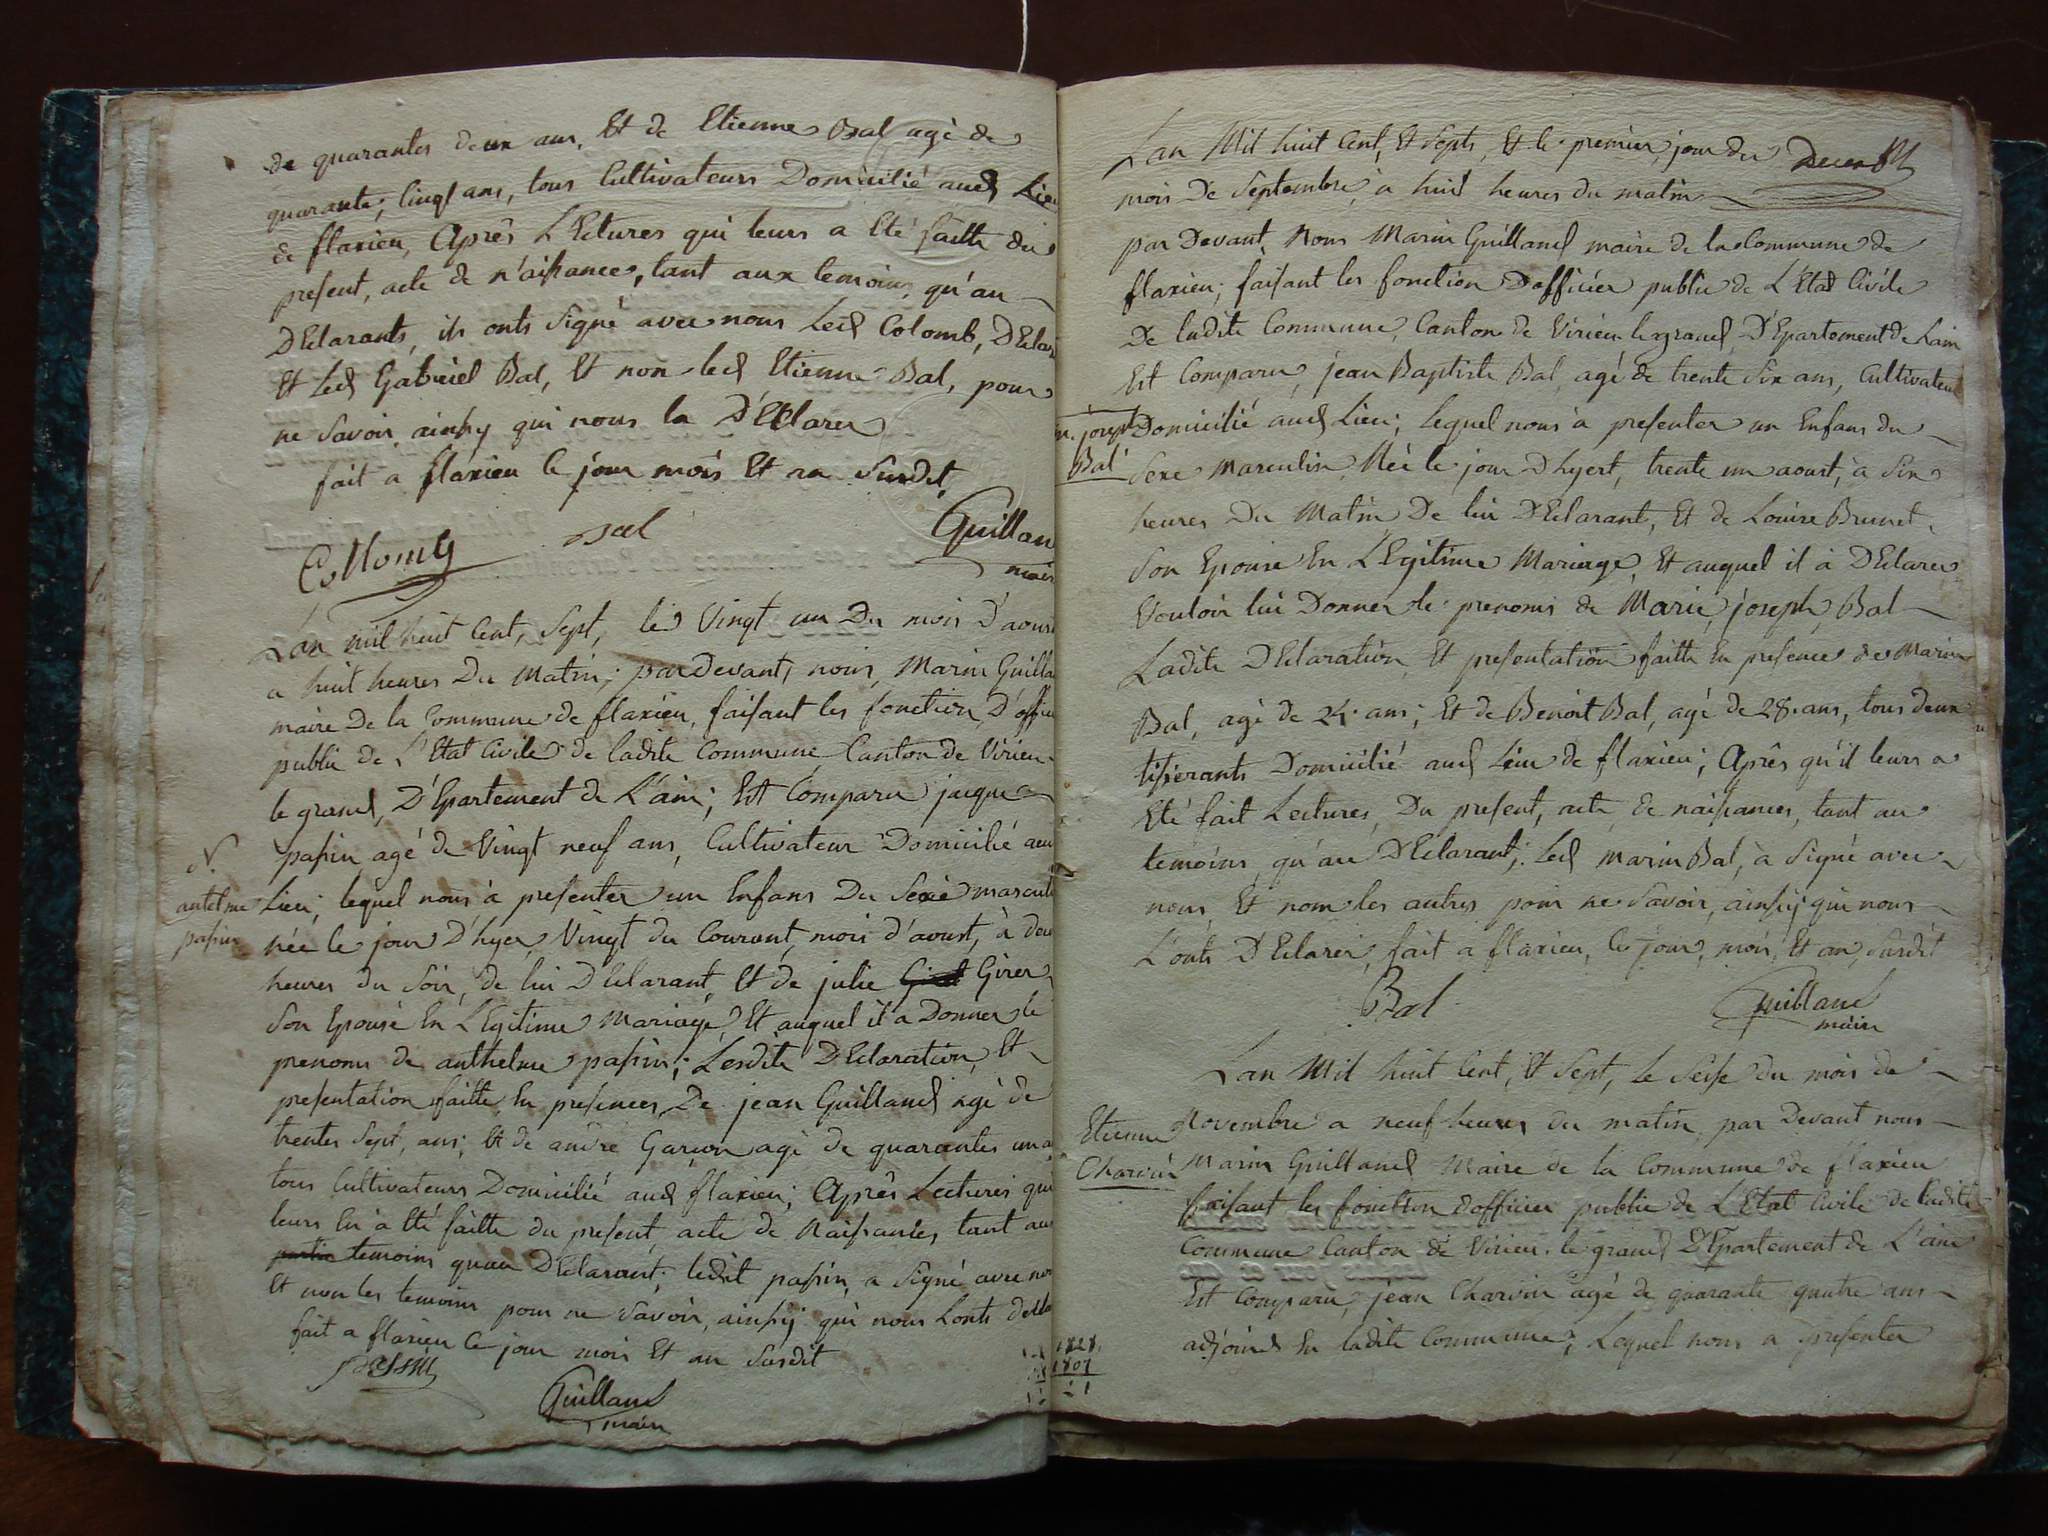 de quarantes deux ans, Et de Etienne Bal agé de
quarante, Cinqt ans, tous Cultivateurs Domicilié aud Lieu
de flaxieu, Après LEctures qui leurs a Eté faitte du
present, acte de n'aissances, tant aux temoins, qu'au
DEclarants, ils onts Signé avec nous Led Colomb, DEclar
Et Led Gabriel Bal, Et non led Etienne Bal, pour
ne Savoir, ainsy qui nous la D'EClarer
fait a flaxieu le jour mois Et an Susdit,
Bal
Guillan
maire
Lan mil huit Cent, Sept, le Vingt un Du mois D'aoust
a huit heures Du Matin; par Devant, nous, Marin Guilla
maire De la Commune de flaxieu, faisant les fonction D'offici
public de L'Etat Civile de ladite Commune Canton de Virieu
le grand, D'Epartement de L'ain; Est Comparu jacque
passin agé de Vingt neuf ans, Cultivateur Domicilié aud
N.
antelme
passin
Lieu; lequel nous à presenter un Enfans Du Sexe mascul
née le jour D'hyer, Vingt du Courant, mois d'aoust, à deu
heures du Soir, de lui DEclarant, Et de julie Girer
Son Epouse En LEgitime Mariage, Et auquel il a Donner le
prenoms de anthelme passin; Lesdite DEclaration, Et
presentation faitte En presences De jean Guilland agé de
trentes Sept, ans; Et de andre Garçon agé de quarantes un a
tous Cultivateurs Domicilié aud flaxieu; Après Lectures qui
leurs En à Eté faitte du present, acte de Naissances, tant aux
temoins quau DEclarant; ledit passin, a Signé avec nou
Et non les temoins pour ne Savoir, ainsy qui nous Lonts decla
fait a flaxieu Ce jour mois Et an Susdit
passin
Guilland
maire
Lan Mil huit Cent, Et Septs, Et le premier jour du
mois De Septembre, à huit heures du matin
par Devant, Nous Marin Guilland maire de la Commune de
flaxieu; faisant les fonction Dofficier public de L'Etat Civile
De ladite Commune, Canton de Virieu le grand, D'Epartement de Lain
Est Comparu, jean Baptiste Bal, agé de trente Six ans, Cultivateur
joseph
Bal
Domicilié aud Lieu; lequel nous à presenter un Enfans du
Sexe Masculin, Née le jour Dhyert, trente un aoust, à Six
heures Du Matin De lui DEclarant, Et de Louise Brunet,
Son Epouse En LEgitime Mariage, Et auquel il à DEclarer
Vouloir lui Donner le prenoms de Marie, joseph, Bal
Ladite DEclaration, Et presentation faitte En presence de Marin
Bal, agé de ans; Et de Benoit Bal, agé de 28. ans, tous deux
tisserants Domicilié aud Lieu de flaxieu; Après qu'il leurs a
Eté fait Lectures, Du present, acte de naissances, tant au
temoins, qu'au DEclarant; Led Marin Bal, à Signé avec
nous, Et nom les autres pour ne Savoir, ainsy qui nous
L'onts DEclarer, fait a flaxieu, le jour, mois, Et an, Susdit
Bal
Guilland
maire
Lan Mil huit Cent, Et Sept, le Seise du mois de
Etienne
Charvin
Novembre a neuf heures du matin, par Devant nous
Marin Guilland Maire de la Commune de flaxieu
faisant les fonction dofficier public de L'Etat Civile de ladite
Commune Canton de Virieu le grand DEpartement de L'ain
Est Comparu, jean Charvin agé de quarante quatre ans
adjoind En ladite Commune; Lequel nous a presenter
1828
1807
21